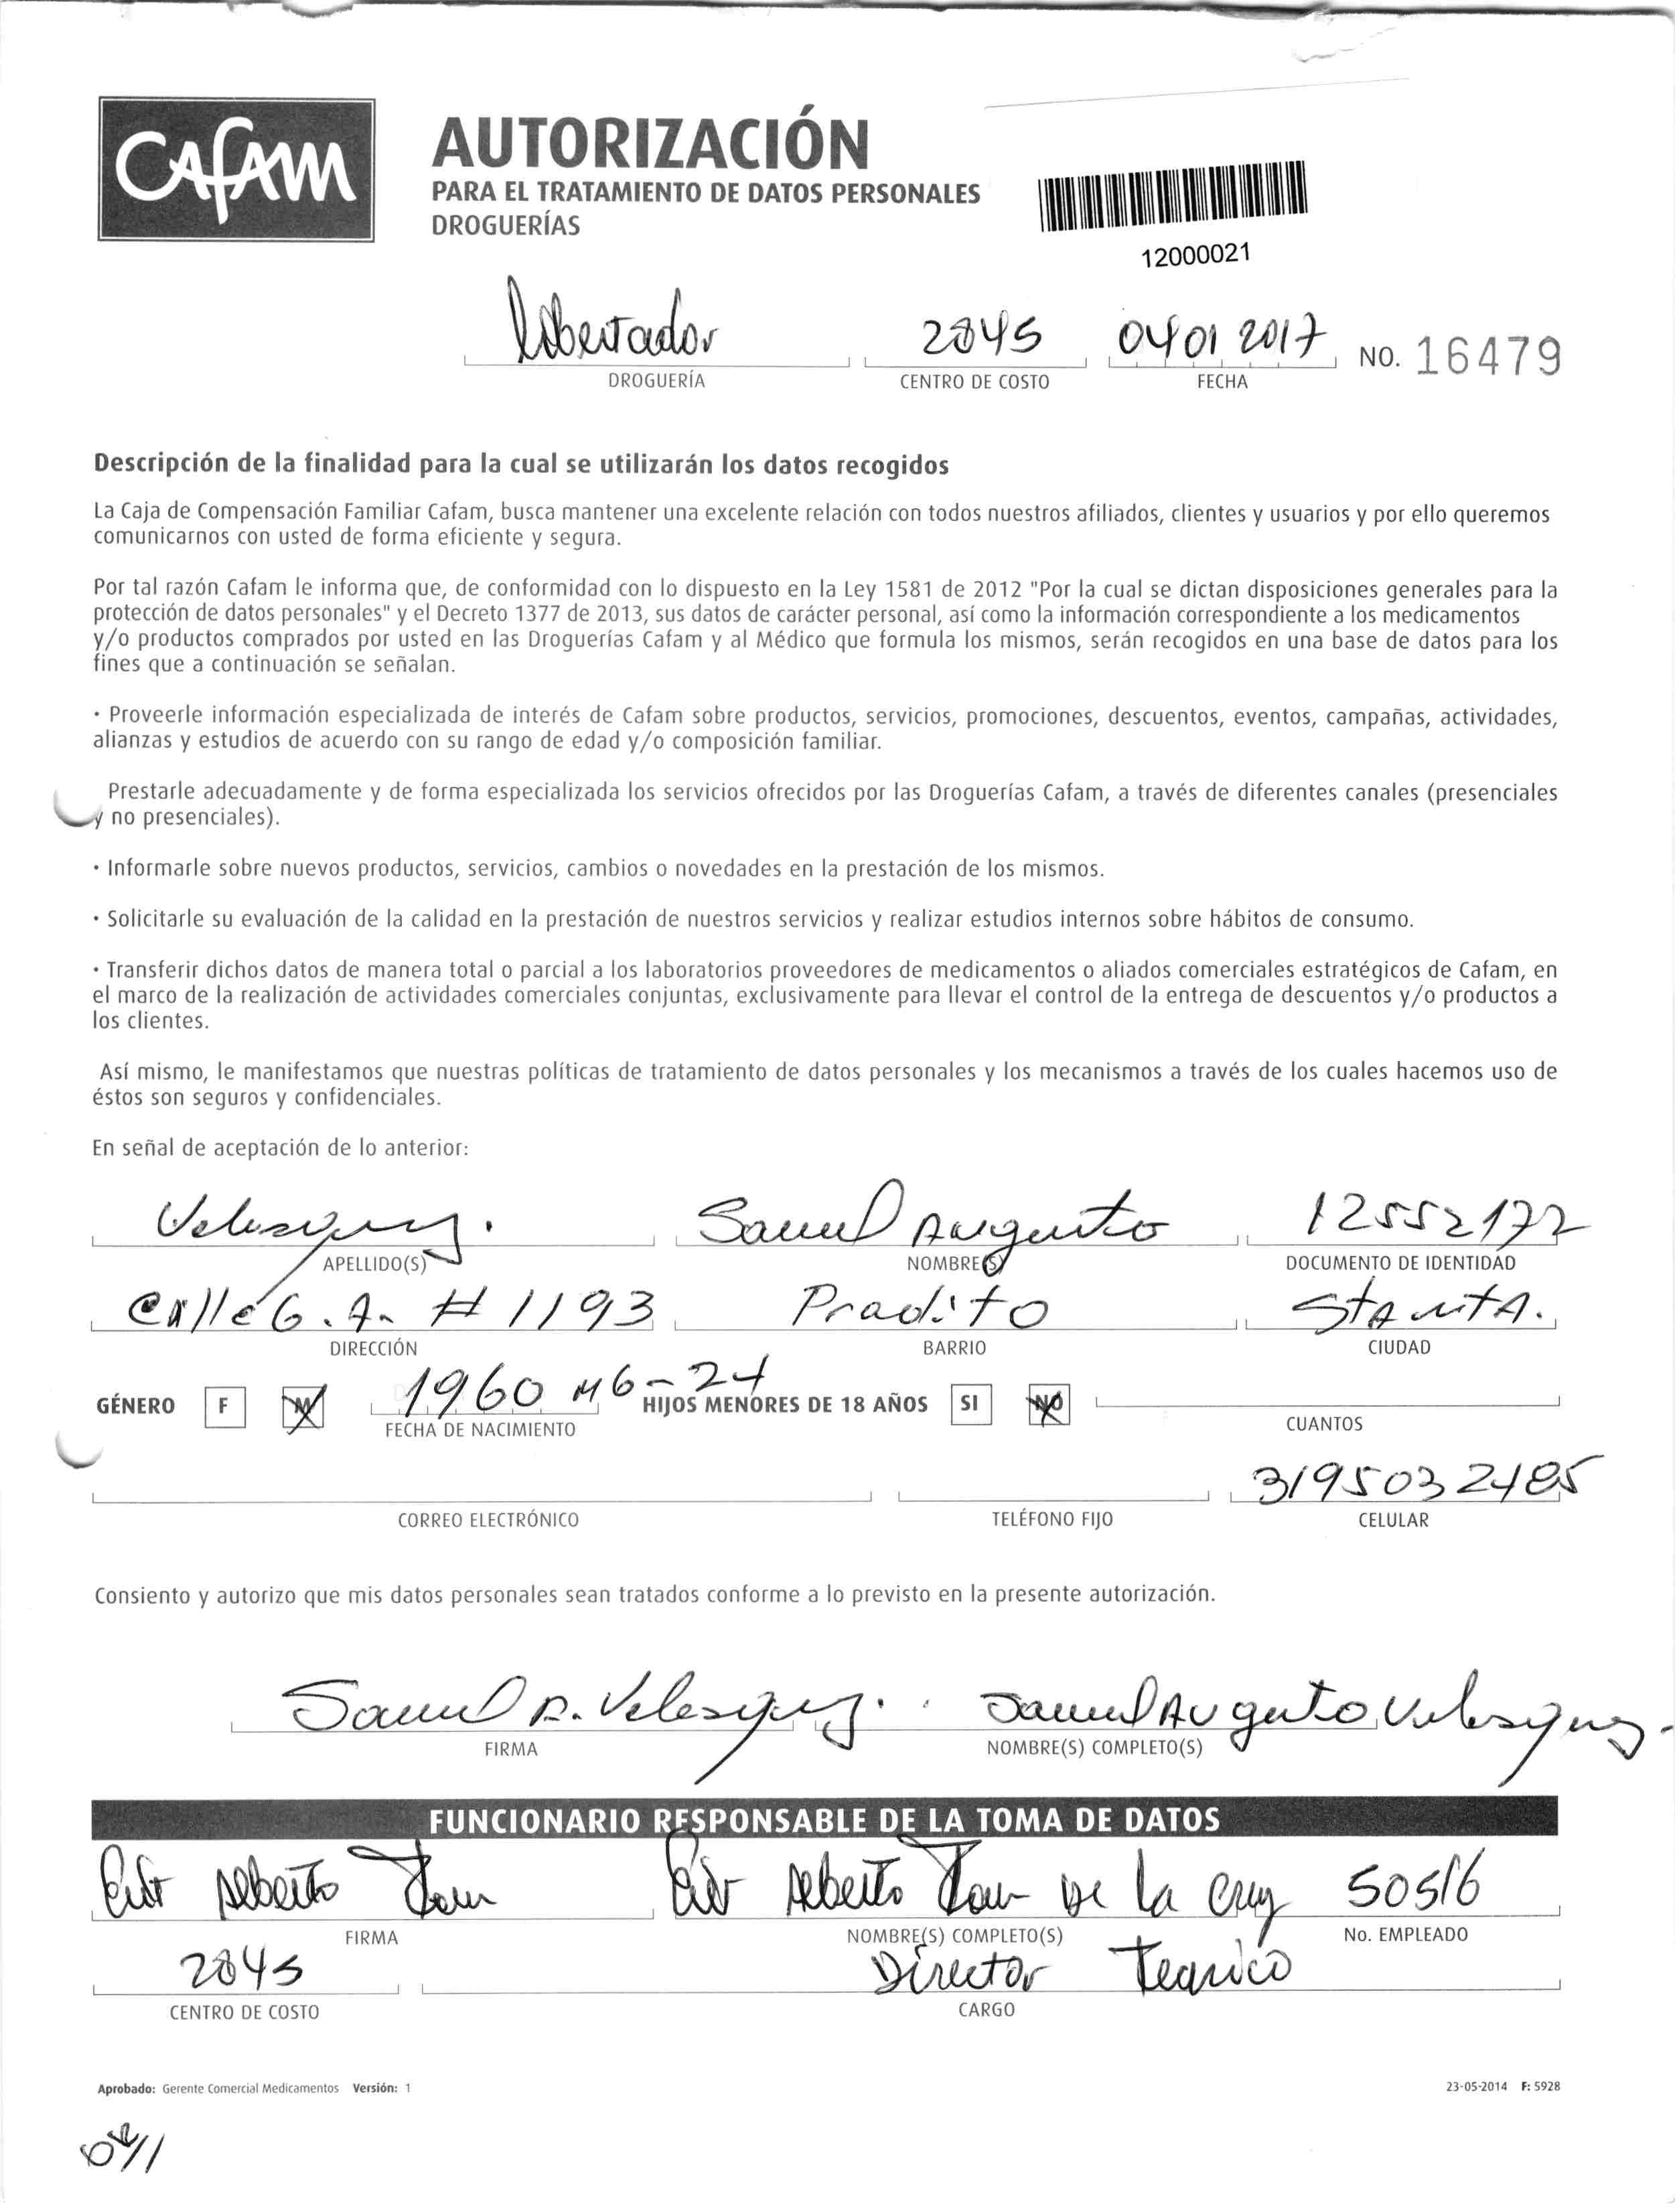 CAFAM
AUTORIZACIÓN
PARA EL TRATAMIENTO DE DATOS PERSONALES
DROGUERÍAS
12000021
Libertador 2845 04 01 2017 NO. 16479
DROGUERÍA CENTRO DE COSTO FECHA
Descripción de la finalidad para la cual se utilizarán los datos recogidos
La Caja de Compensación Familiar Cafam, busca mantener una excelente relación con todos nuestros afiliados, clientes y usuarios y por ello queremos
comunicarnos con usted de forma eficiente y segura.
Por tal razón Cafam le informa que, de conformidad con lo dispuesto en la Ley 1581 de 2012 "Por la cual se dictan disposiciones generales para la
protección de datos personales" y el Decreto 1377 de 2013, sus datos de carácter personal, así como la información correspondiente a los medicamentos
y/o productos comprados por usted en las Droguerías Cafam y al Médico que formula los mismos, serán recogidos en una base de datos para los
fines que a continuación se señalan.
· Proveerle información especializada de interés de Cafam sobre productos, servicios, promociones, descuentos, eventos, campañas, actividades,
alianzas y estudios de acuerdo con su rango de edad y/o composición familiar.
Prestarle adecuadamente y de forma especializada los servicios ofrecidos por las Droguerías Cafam, a través de diferentes canales (presenciales
y no presenciales).
· Informarle sobre nuevos productos, servicios, cambios o novedades en la prestación de los mismos.
· Solicitarle su evaluación de la calidad en la prestación de nuestros servicios y realizar estudios internos sobre hábitos de consumo.
· Transferir dichos datos de manera total o parcial a los laboratorios proveedores de medicamentos o aliados comerciales estratégicos de Cafam, en
el marco de la realización de actividades comerciales conjuntas, exclusivamente para llevar el control de la entrega de descuentos y/o productos a
los clientes.
Así mismo, le manifestamos que nuestras políticas de tratamiento de datos personales y los mecanismos a través de los cuales hacemos uso de
éstos son seguros y confidenciales.
En señal de aceptación de lo anterior:
Velasquez. Samuel Augusto 12552172
APELLIDO(S) NOMBRE(S) DOCUMENTO DE IDENTIDAD
Calle 6. A. # 1193 Pradito StA MTA.
DIRECCIÓN BARRIO CIUDAD
GÉNERO F M 1960 M6-24 HIJOS MENORES DE 18 AÑOS SI NO
FECHA DE NACIMIENTO CUANTOS
3195032485
CORREO ELECTRÓNICO TELÉFONO FIJO CELULAR
Consiento y autorizo que mis datos personales sean tratados conforme a lo previsto en la presente autorización.
Samuel A. Velasquez. Samuel Augusto Velasquez
FIRMA NOMBRE(S) COMPLETO(S)
FUNCIONARIO RESPONSABLE DE LA TOMA DE DATOS
Alberto Alberto De la Cruz 50516
FIRMA NOMBRE(S) COMPLETO(S) No. EMPLEADO
2845 Director Tecnico
CENTRO DE COSTO CARGO
Aprobado: Gerente Comercial Medicamentos Versión: 1 23-05-2014 F: 5928